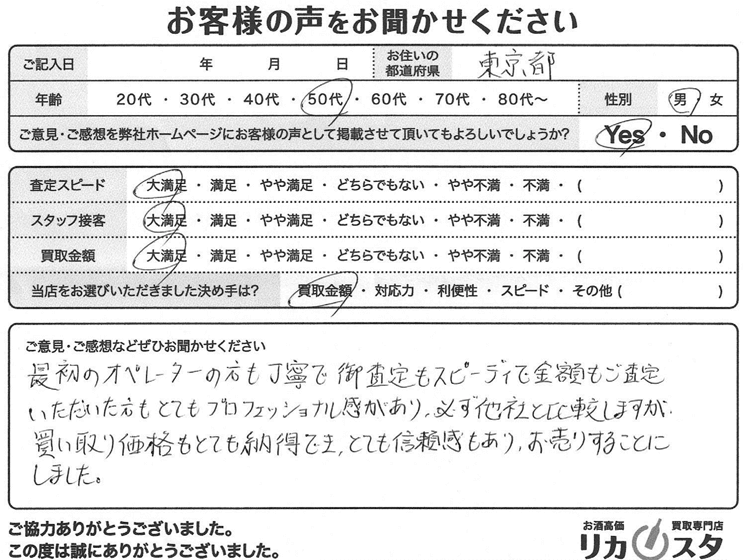 お客様の声をお聞かせください
ご記入日 年 月 日 お住いの都道府県 東京都
年齢 20代・30代・40代・50代・60代・70代・80代〜 性別 男・女
ご意見・ご感想を弊社ホームページにお客様の声として掲載させて頂いてもよろしいでしょうか? Yes・No
査定スピード 大満足・満足・やや満足・どちらでもない・やや不満・不満・( )
スタッフ接客 大満足・満足・やや満足・どちらでもない・やや不満・不満・( )
買取金額 大満足・満足・やや満足・どちらでもない・やや不満・不満・( )
当店をお選びいただきました決め手は? 買取金額・対応力・利便性・スピード・その他( )
ご意見・ご感想などぜひお聞かせください
最初のオペレーターの方も丁寧で御査定もスピーディで金額もご査定
いただいた方もとてもプロフェッショナル感があり、必ず他社と比較しますが、
買い取り価格もとても納得でき、とても信頼感もあり、お売りすることに
しました。
ご協力ありがとうございました。
この度は誠にありがとうございました。
お酒高価 買取専門店
リカスタ